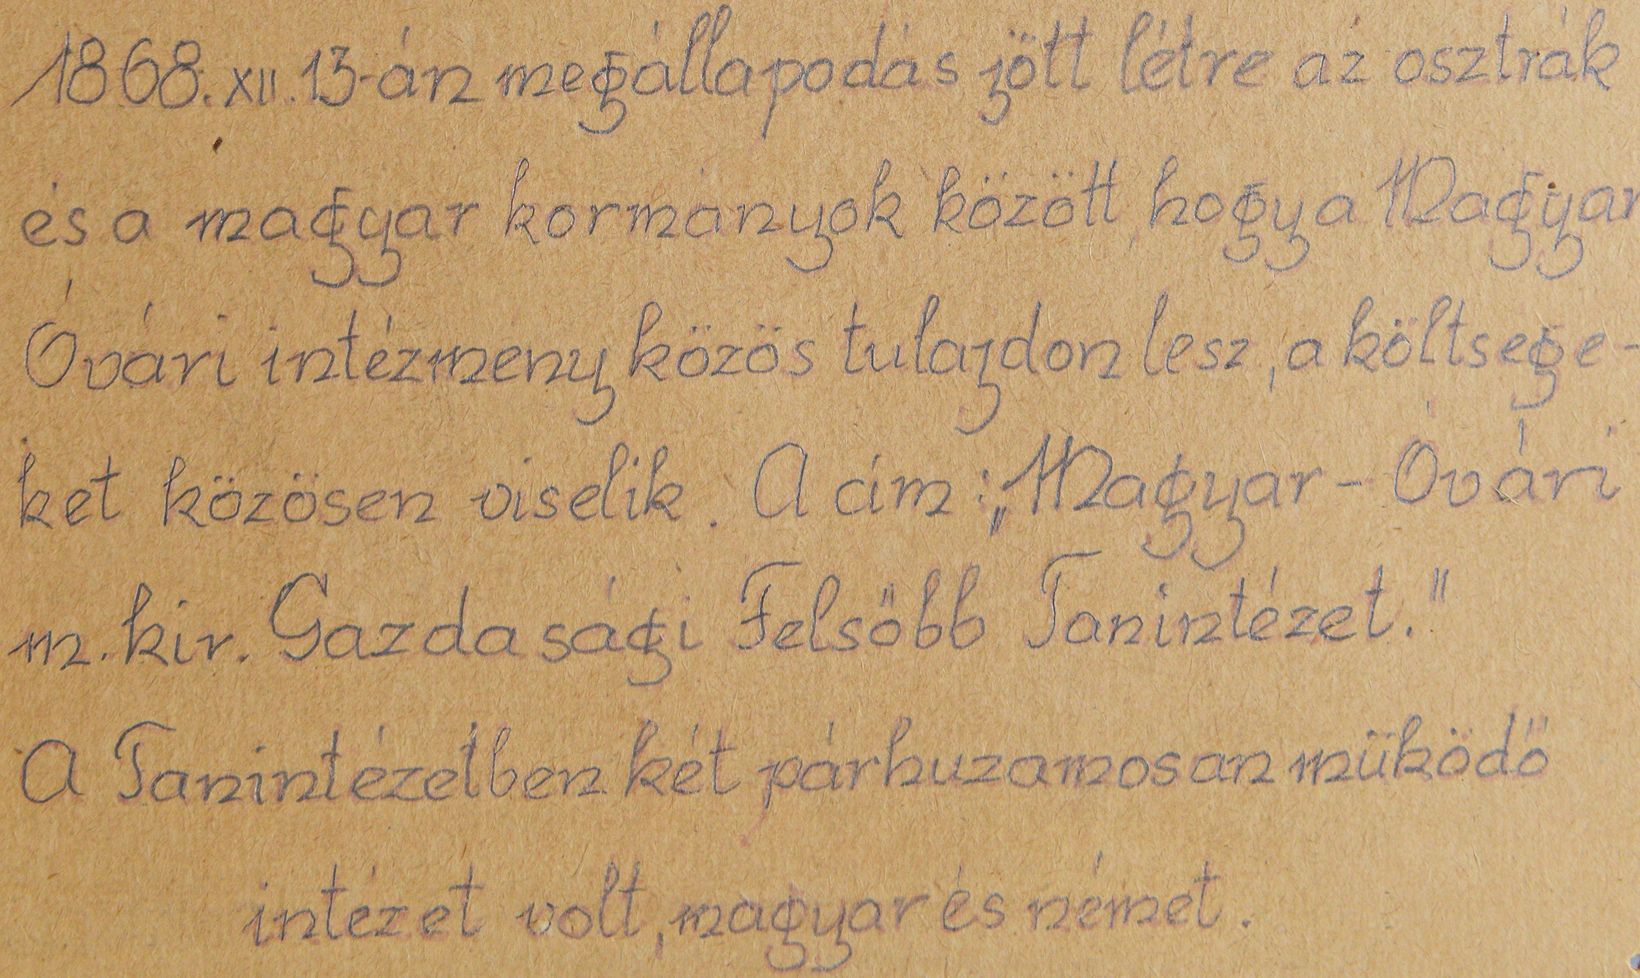 1868. XII. 13-án megállapodás jött létre az osztrák
és a magyar kormányok között, hogy a Magyar
Óvári intézmény közös tulajdon lesz, a költsége-
ket közösen viselik. A cím: „Magyar - Óvári
m. kir. Gazdasági Felsőbb Tanintézet."
A Tanintézetben két párhuzamosan működő
intézet volt, magyar és német.